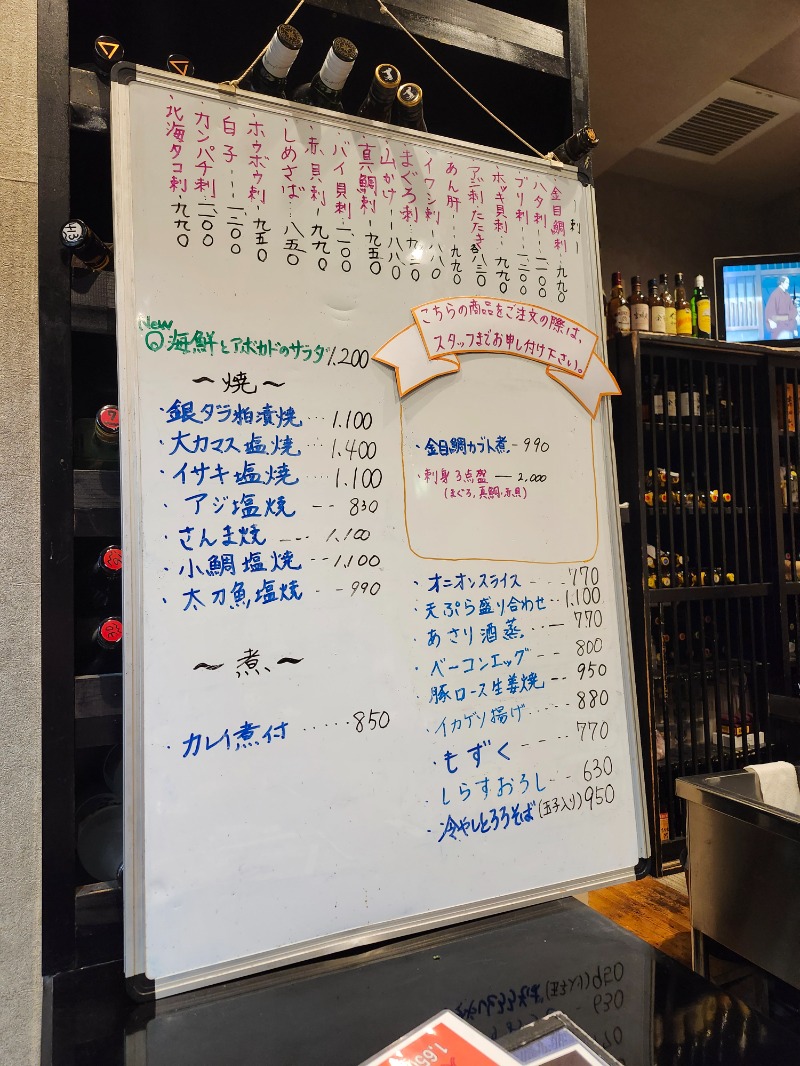 ー刺ー
・金目鯛刺-九九〇
・ハタ刺-一、一〇〇
・ブリ刺-一、一〇〇
・ホッキ貝刺-九九〇
・アジ刺・たたき各八三〇
・あん肝-九九〇
・イワシ刺-八八〇
・まぐろ刺-九二〇
・山かけ-八八〇
・真鯛刺-九五〇
・バイ貝刺-一、一〇〇
・赤貝刺-九九〇
・しめさば-八五〇
・ホウボウ刺-九五〇
・白子---一、二〇〇
・カンパチ刺-一、一〇〇
・北海タコ刺-九九〇
New
海鮮とアボカドのサラダ 1.200
〜焼〜
・銀タラ粕漬焼…1.100
・大カマス塩焼…1.400
・イサキ塩焼…1.100
・アジ塩焼 -- 830
・さんま焼---1.100
・小鯛塩焼--1.100
・太刀魚塩焼---990
〜煮〜
・カレイ煮付……850
こちらの商品をご注文の際は、
スタッフまでお申し付け下さい。
・金目鯛カブト煮-990
・刺身3点盛 — 2,000
(まぐろ,真鯛・赤貝)
・オニオンスライス----770
・天ぷら盛り合わせ--1.100
・あさり酒蒸---770
・ベーコンエッグ---800
・豚ロース生姜焼--950
・イカゲソ揚げ----880
・もずく----770
・しらすおろし---630
・冷やしとろろそば(玉子入り)950
1,650